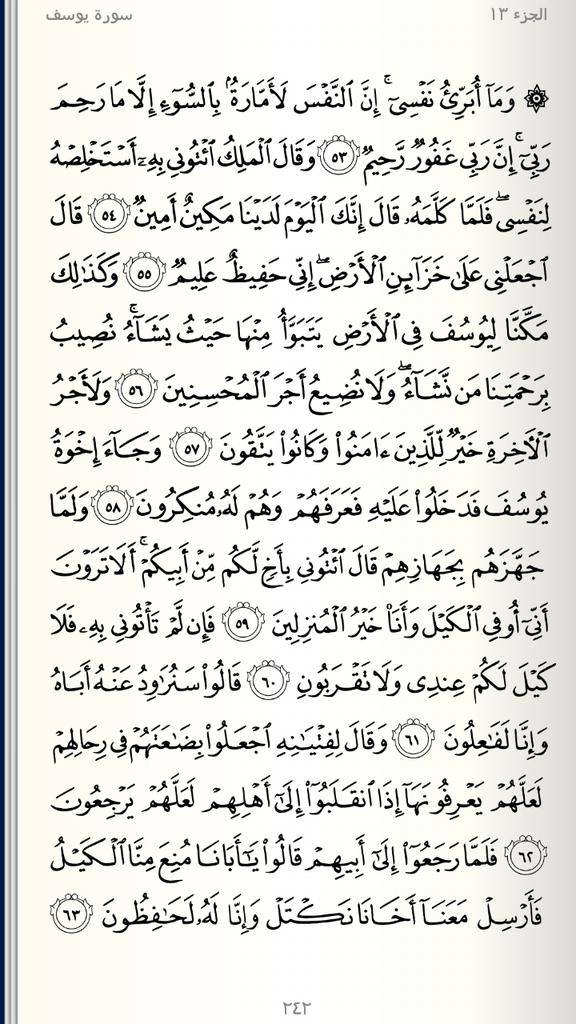 الجزء ١٣
سورة يوسف
۞ وَمَآ أُبَرِّئُ نَفْسِىٓ ۚ إِنَّ ٱلنَّفْسَ لَأَمَّارَةٌۢ بِٱلسُّوٓءِ إِلَّا مَا رَحِمَ
رَبِّىٓ ۚ إِنَّ رَبِّى غَفُورٌ رَّحِيمٌ ٥٣ وَقَالَ ٱلْمَلِكُ ٱئْتُونِى بِهِۦٓ أَسْتَخْلِصْهُ
لِنَفْسِى ۖ فَلَمَّا كَلَّمَهُۥ قَالَ إِنَّكَ ٱلْيَوْمَ لَدَيْنَا مَكِينٌ أَمِينٌ ٥٤ قَالَ
ٱجْعَلْنِى عَلَىٰ خَزَآئِنِ ٱلْأَرْضِ ۖ إِنِّى حَفِيظٌ عَلِيمٌ ٥٥ وَكَذَٰلِكَ
مَكَّنَّا لِيُوسُفَ فِى ٱلْأَرْضِ يَتَبَوَّأُ مِنْهَا حَيْثُ يَشَآءُ ۚ نُصِيبُ
بِرَحْمَتِنَا مَن نَّشَآءُ ۖ وَلَا نُضِيعُ أَجْرَ ٱلْمُحْسِنِينَ ٥٦ وَلَأَجْرُ
ٱلْءَاخِرَةِ خَيْرٌ لِّلَّذِينَ ءَامَنُوا۟ وَكَانُوا۟ يَتَّقُونَ ٥٧ وَجَآءَ إِخْوَةُ
يُوسُفَ فَدَخَلُوا۟ عَلَيْهِ فَعَرَفَهُمْ وَهُمْ لَهُۥ مُنكِرُونَ ٥٨ وَلَمَّا
جَهَّزَهُم بِجَهَازِهِمْ قَالَ ٱئْتُونِى بِأَخٍ لَّكُم مِّنْ أَبِيكُمْ ۚ أَلَا تَرَوْنَ
أَنِّىٓ أُوفِى ٱلْكَيْلَ وَأَنَا۠ خَيْرُ ٱلْمُنزِلِينَ ٥٩ فَإِن لَّمْ تَأْتُونِى بِهِۦ فَلَا
كَيْلَ لَكُمْ عِندِى وَلَا تَقْرَبُونِ ٦٠ قَالُوا۟ سَنُرَٰوِدُ عَنْهُ أَبَاهُ
وَإِنَّا لَفَٰعِلُونَ ٦١ وَقَالَ لِفِتْيَٰنِهِ ٱجْعَلُوا۟ بِضَٰعَتَهُمْ فِى رِحَالِهِمْ
لَعَلَّهُمْ يَعْرِفُونَهَآ إِذَا ٱنقَلَبُوٓا۟ إِلَىٰٓ أَهْلِهِمْ لَعَلَّهُمْ يَرْجِعُونَ
٦٢ فَلَمَّا رَجَعُوٓا۟ إِلَىٰٓ أَبِيهِمْ قَالُوا۟ يَٰٓأَبَانَا مُنِعَ مِنَّا ٱلْكَيْلُ
فَأَرْسِلْ مَعَنَآ أَخَانَا نَكْتَلْ وَإِنَّا لَهُۥ لَحَٰفِظُونَ ٦٣
٢٤٢